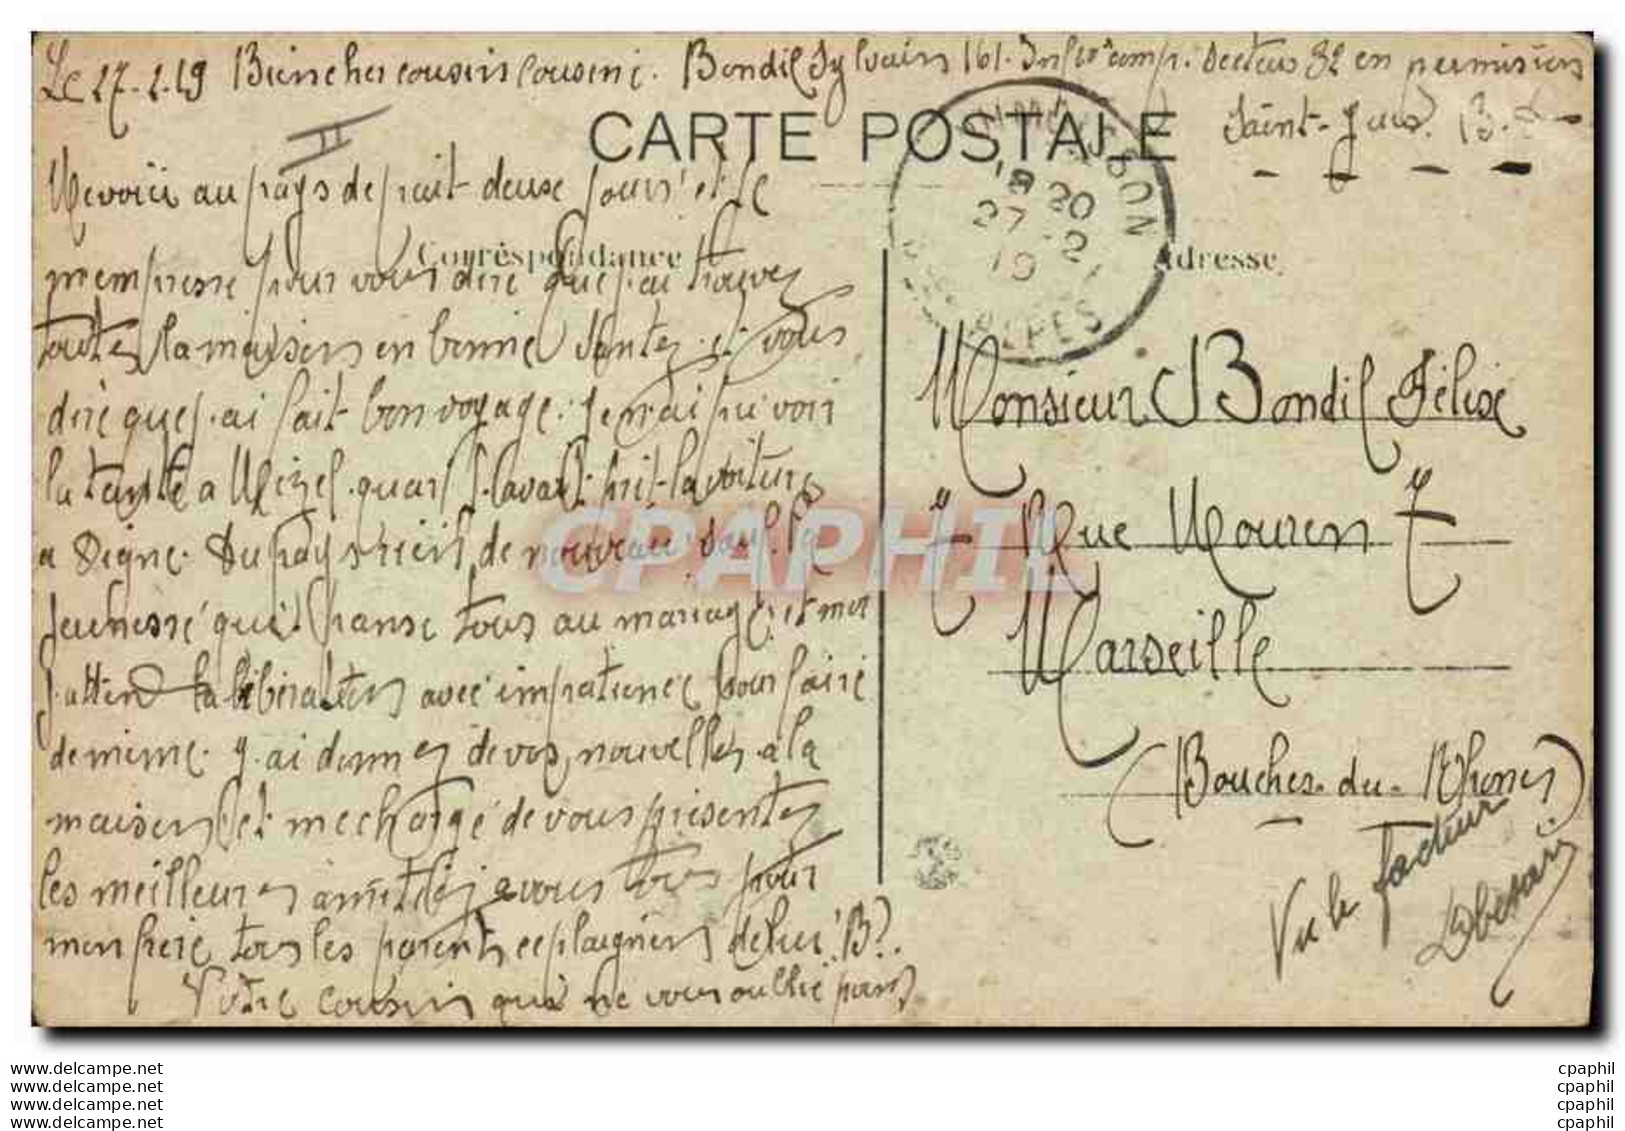 Le 27-2-19 Bien cher cousin cousine. Bondil Sylvain 161. Inf 10e comp. Secteur 32 en permission
Saint-Jurs. B.
II
CARTE POSTALE
Me voici au pays de puit deuse jours et je
Correspondance
Adresse
m empresse pour vous dire que j ai trouvez
toutes la maison en bonne santez et vous
dire que j. ai fait bon voyage. Je n ai pu voir
la tante a Mezel. quar j. lavai prit la voiture
a Digne. Du pays rien de nouveau sauf la
jeunesse qui pense tous au mariage. et moi
j atten la libération avec impatience pour faire
de même. J. ai donnez de vos nouvelles a la
maison et me charge de vous présenter
les meilleures amitiés a vous tous pour
mon frere tous les parents
Votre cousin qui ne vous oublie pas
19 20
27 -2
19
ALPES
Monsieur Bondil Félix
7 Rue Mouren 7
Marseille
(Bouches-du-Rhone)
Vu le facteur
CPAPHIL
www.delcampe.net
www.delcampe.net
www.delcampe.net
www.delcampe.net
cpaphil
cpaphil
cpaphil
cpaphil